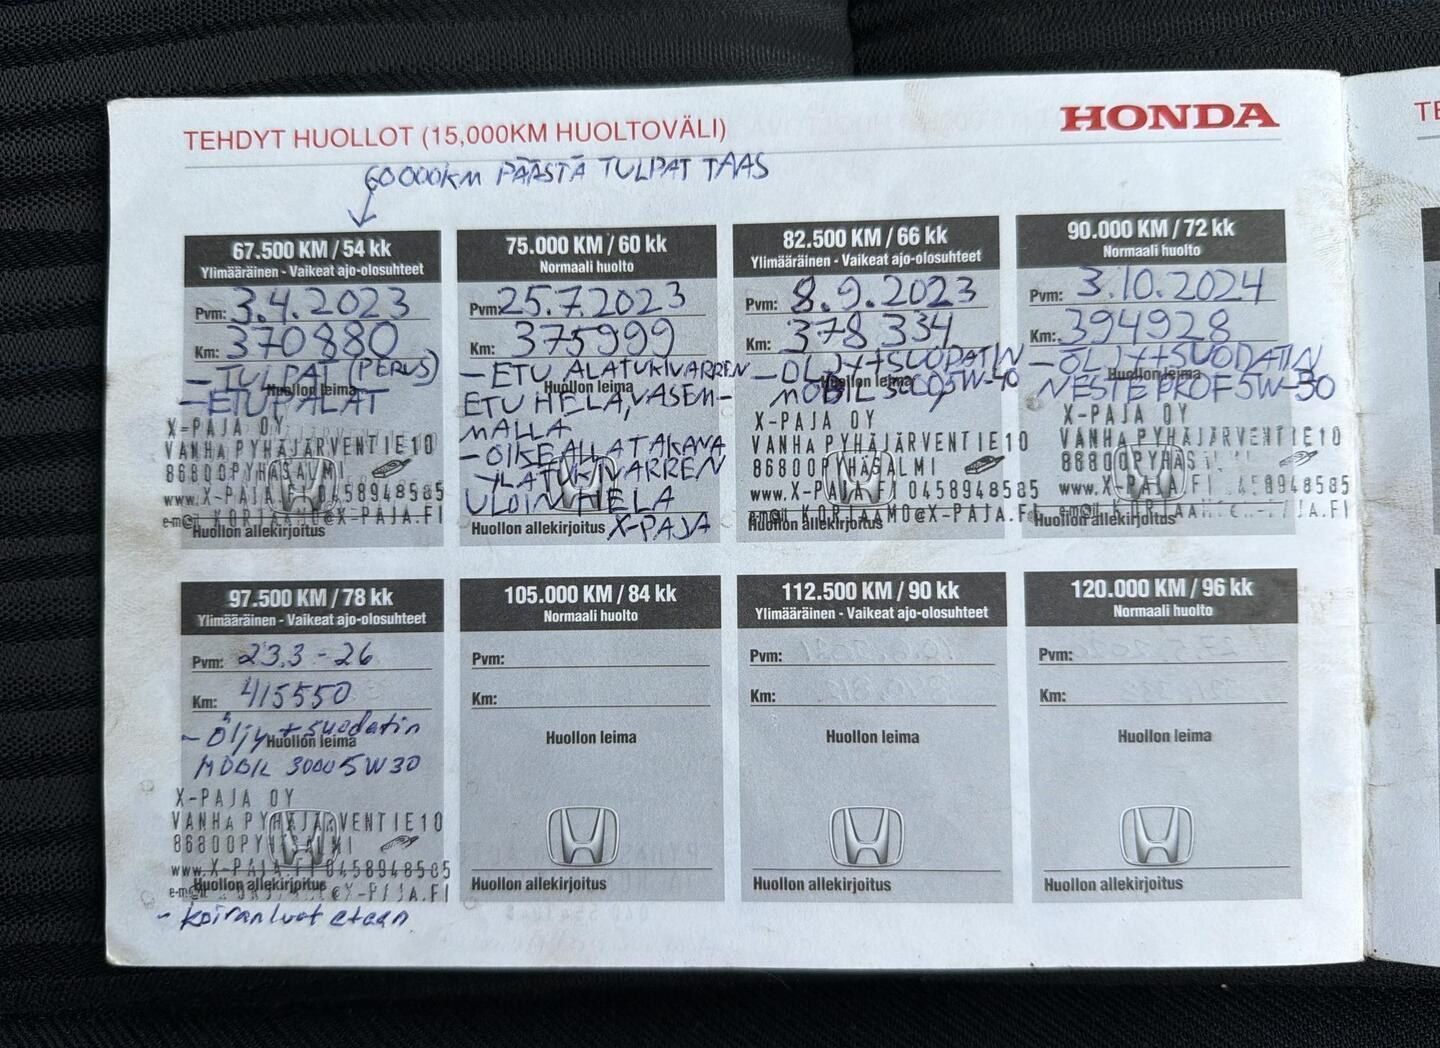 TEHDYT HUOLLOT (15,000KM HUOLTOVÄLI)
HONDA
TE
60000KM PÄÄSTÄ TULPAT TAAS
67.500 KM / 54 kk
Ylimääräinen - Vaikeat ajo-olosuhteet
Pvm: 3.4.2023
Km: 370880
- TULPAT (PERUS)
Huollon leima
- ETUPALAT
X-PAJA OY
VANHA PYHÄJÄRVENTIE10
86800PYHÄSALMI
www.X-PAJA.FI 0458948585
e-m@il KORJAAMO@X-PAJA.FI
Huollon allekirjoitus
75.000 KM / 60 kk
Normaali huolto
Pvm: 25.7.2023
Km: 375999
- ETU ALATUKIVARREN
Huollon leima
ETU HELA, VASEM-
MALLA
- OIKEALLA TAKANA
YLATUKIVARREN
ULOIN HELA
Huollon allekirjoitus X-PAJA
82.500 KM / 66 kk
Ylimääräinen - Vaikeat ajo-olosuhteet
Pvm: 8.9.2023
Km: 378334
- ÖLJY+SUODATIN
Huollon leima
MOBIL 5W-40
X-PAJA OY
VANHA PYHÄJÄRVENTIE10
86800PYHÄSALMI
www.X-PAJA.FI 0458948585
e-m@il KORJAAMO@X-PAJA.FI
Huollon allekirjoitus
90.000 KM / 72 kk
Normaali huolto
Pvm: 3.10.2024
Km: 394928
- ÖLJY+SUODATIN
Huollon leima
NESTE PROF 5W-30
X-PAJA OY
VANHA PYHÄJÄRVENTIE10
86800PYHÄSALMI
www.X-PAJA.FI 0458948585
Huollon allekirjoitus
97.500 KM / 78 kk
Ylimääräinen - Vaikeat ajo-olosuhteet
Pvm: 23.3-26
Km: 415550
- öljy + suodatin
Huollon leima
MOBIL 3000 5W30
X-PAJA OY
VANHA PYHÄJÄRVENTIE10
86800PYHÄSALMI
www.X-PAJA.FI 0458948585
e-m@il KORJAAMO@X-PAJA.FI
Huollon allekirjoitus
- koiranluut etaan
105.000 KM / 84 kk
Normaali huolto
Pvm:
Km:
Huollon leima
Huollon allekirjoitus
112.500 KM / 90 kk
Ylimääräinen - Vaikeat ajo-olosuhteet
Pvm:
Km:
Huollon leima
Huollon allekirjoitus
120.000 KM / 96 kk
Normaali huolto
Pvm:
Km:
Huollon leima
Huollon allekirjoitus